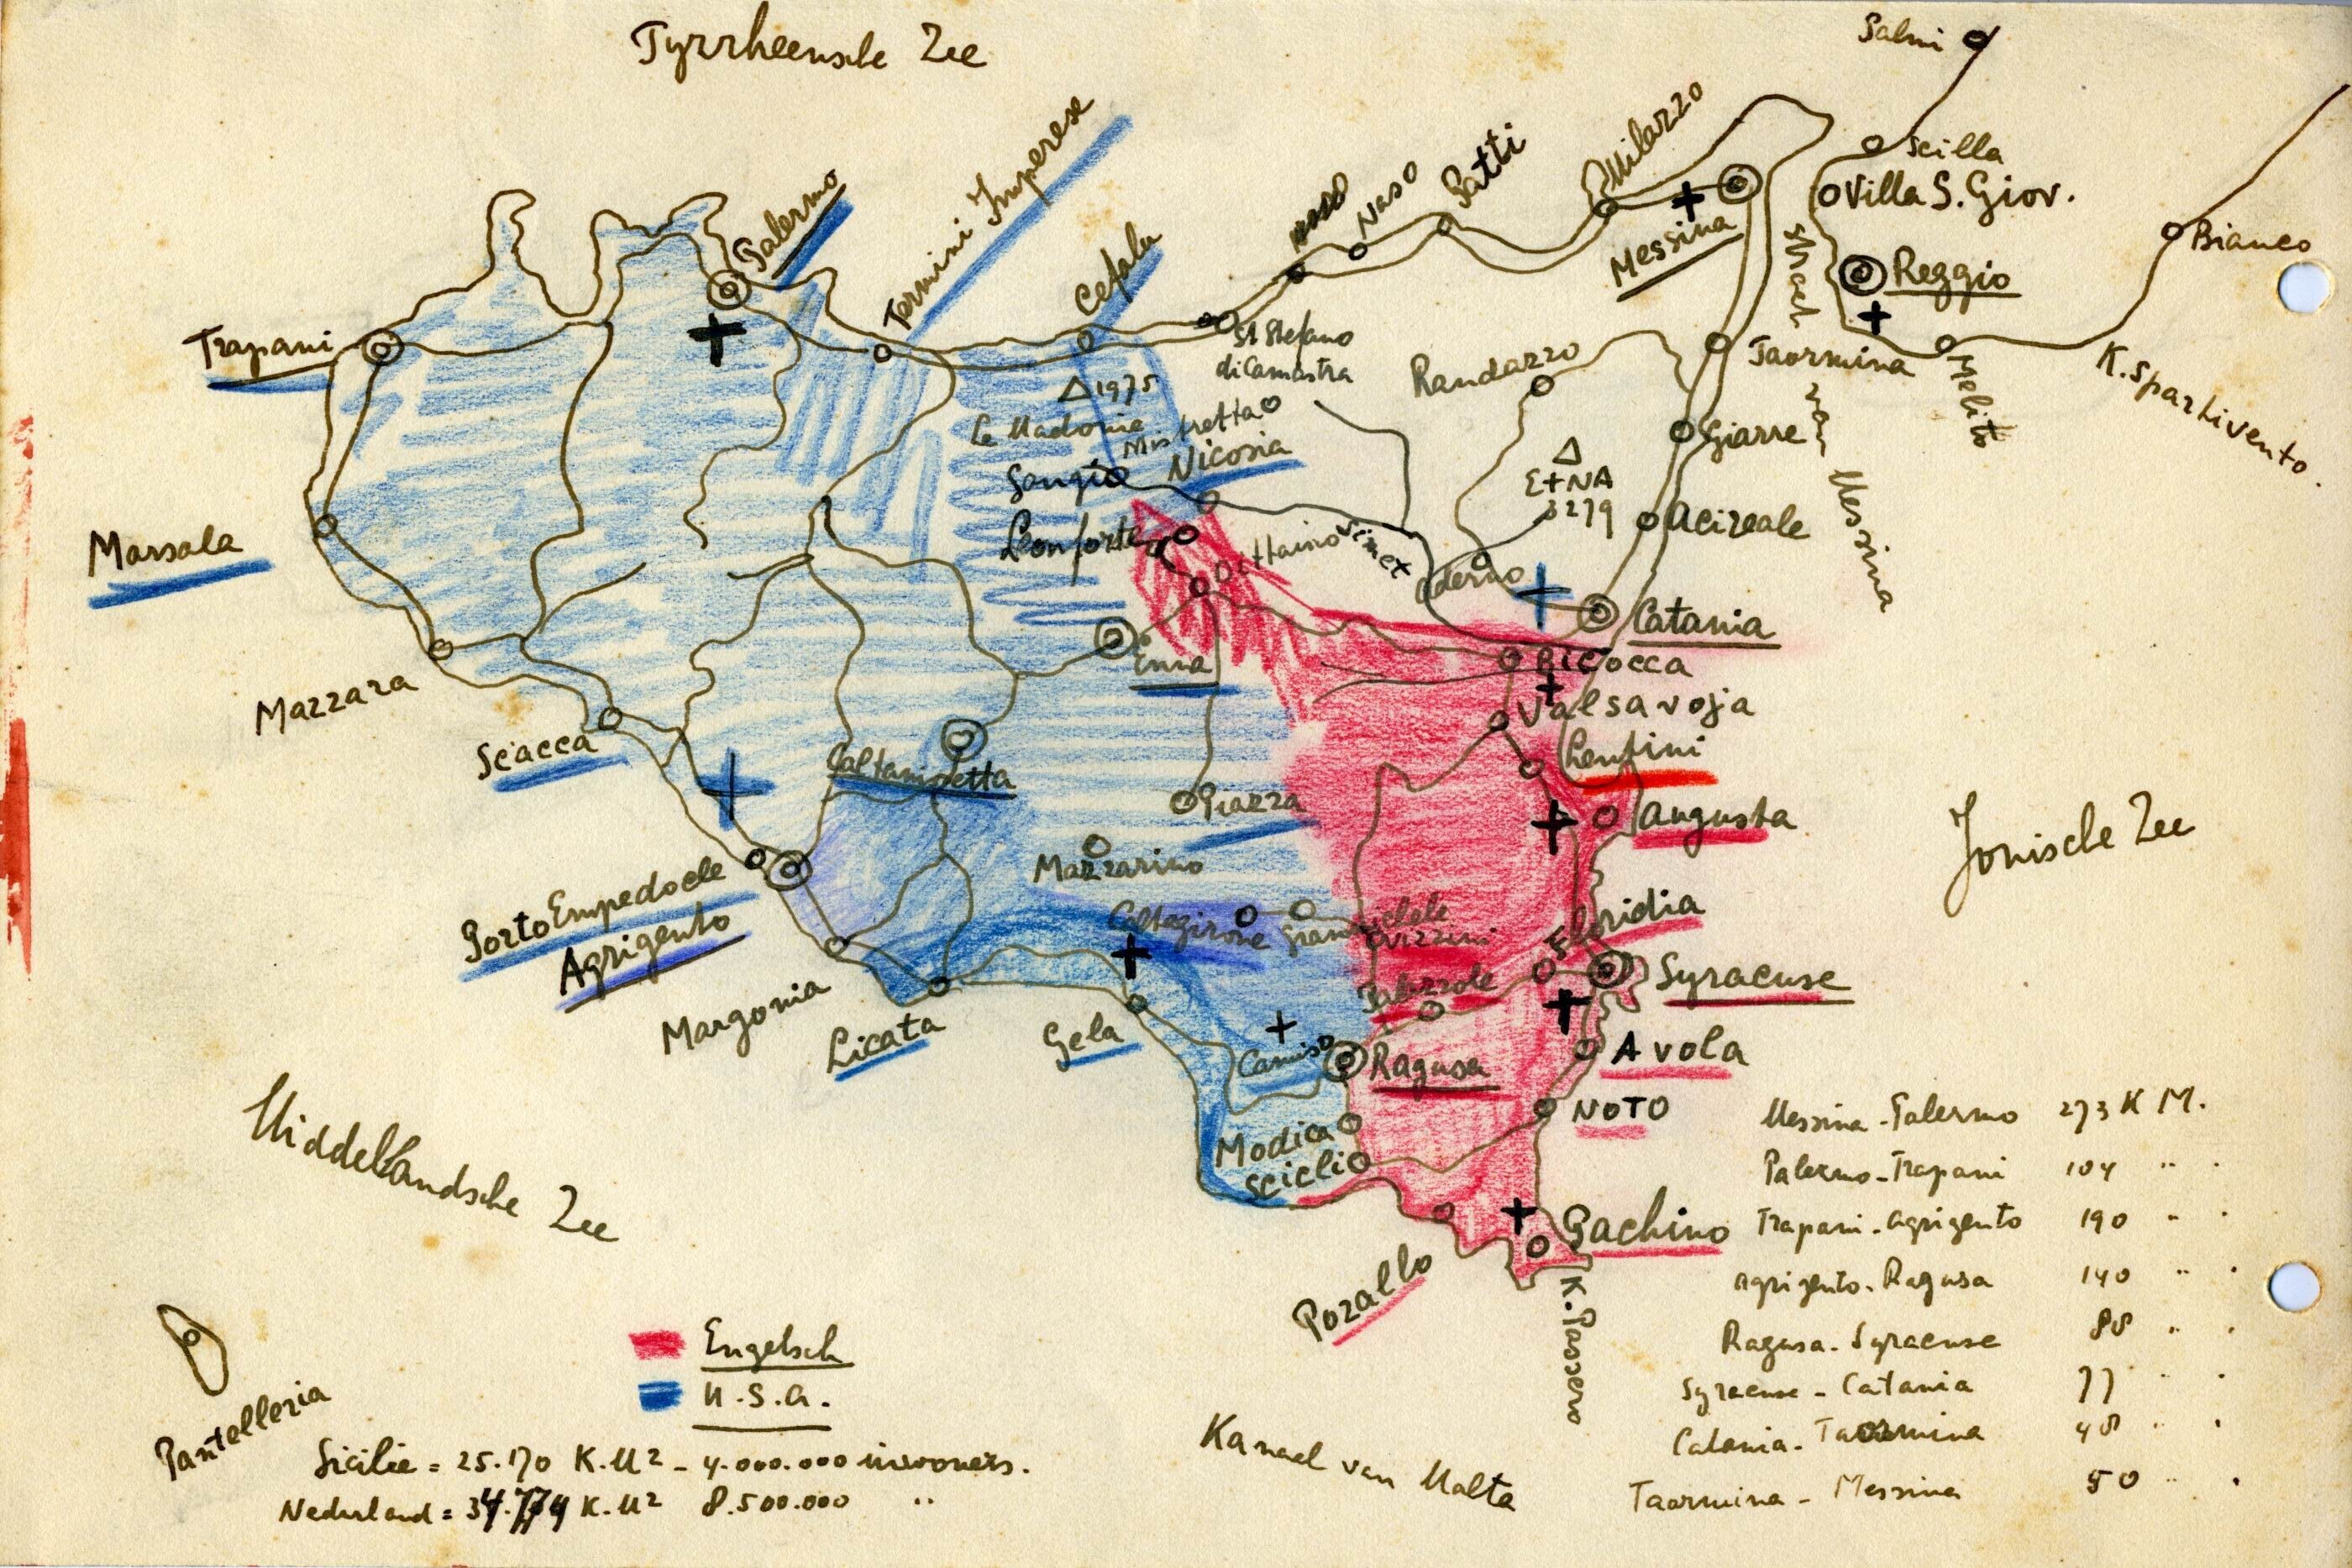 Tyrrheensche Zee
Palmi
Scilla
Villa S. Giov.
Reggio
Bianco
Melito
K. Spartivento.
Straat van Messina
Messina
Milazzo
Patti
Naso
St Stefano
di Camastra
Cefalu
Termini Imperese
Palermo
Trapani
Marsala
Mazzara
Sciacca
Porto Empedocle
Agrigento
Margonia
Licata
Gela
△ 1975
Le Madonie
Mistretta
Nicosia
Gangi
Leonforte
Dittaino
Simet
Enna
Caltanisetta
Piazza
Mazzarino
Caltagirone
Randazzo
Taormina
Giarre
△
EtNA
3279
Acireale
Aderno
Catania
Bicocca
Valsavoja
Lentini
Augusta
Floridia
Vizzini
Palazzole
Syracuse
Avola
NOTO
Camiso
Ragusa
Modica
Scicli
Pachino
Pozallo
K. Passero
Jonische Zee
Middellandsche Zee
Pantelleria
Kanaal van Malta
Engelsch
U.S.A.
Sicilie = 25.170 K.M² - 4.000.000 inwoners.
Nederland = 34.774 K.M² 8.500.000 "
Messina - Palermo 273 K M.
Palermo - Trapani 104 " .
Trapani - Agrigento 190 " .
Agrigento - Ragusa 140 " .
Ragusa - Syracuse 88 " .
Syracuse - Catania 77 " .
Catania - Taormina 48 " .
Taormina - Messina 50 " .